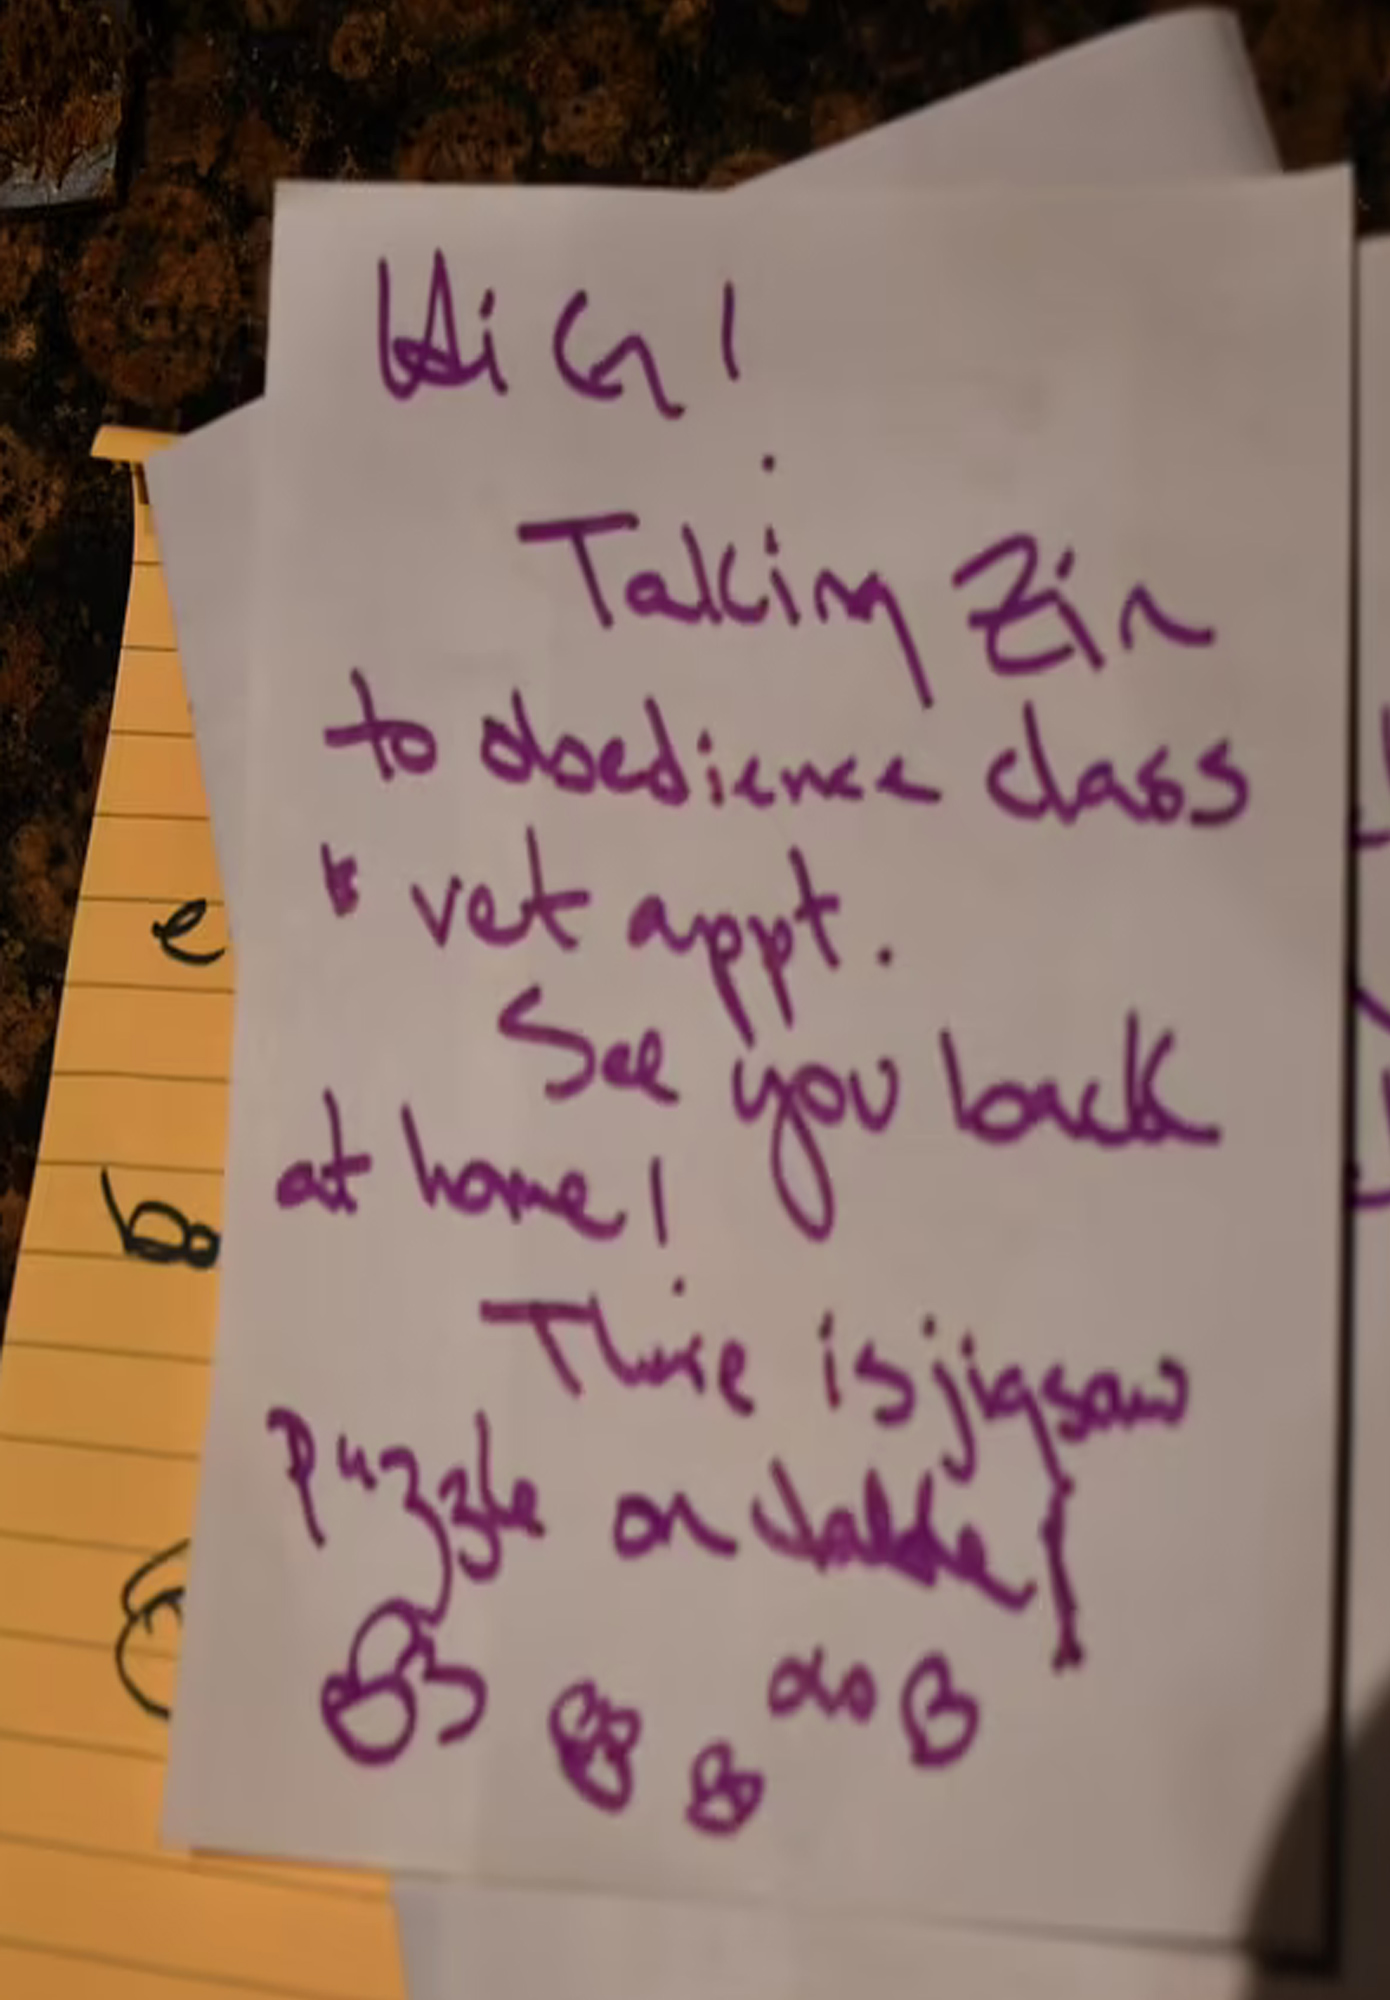 Hi G!
Taking Zin
to obedience class
& vet appt.
See you back
at home!
There is jigsaw
puzzle on table!
e
b